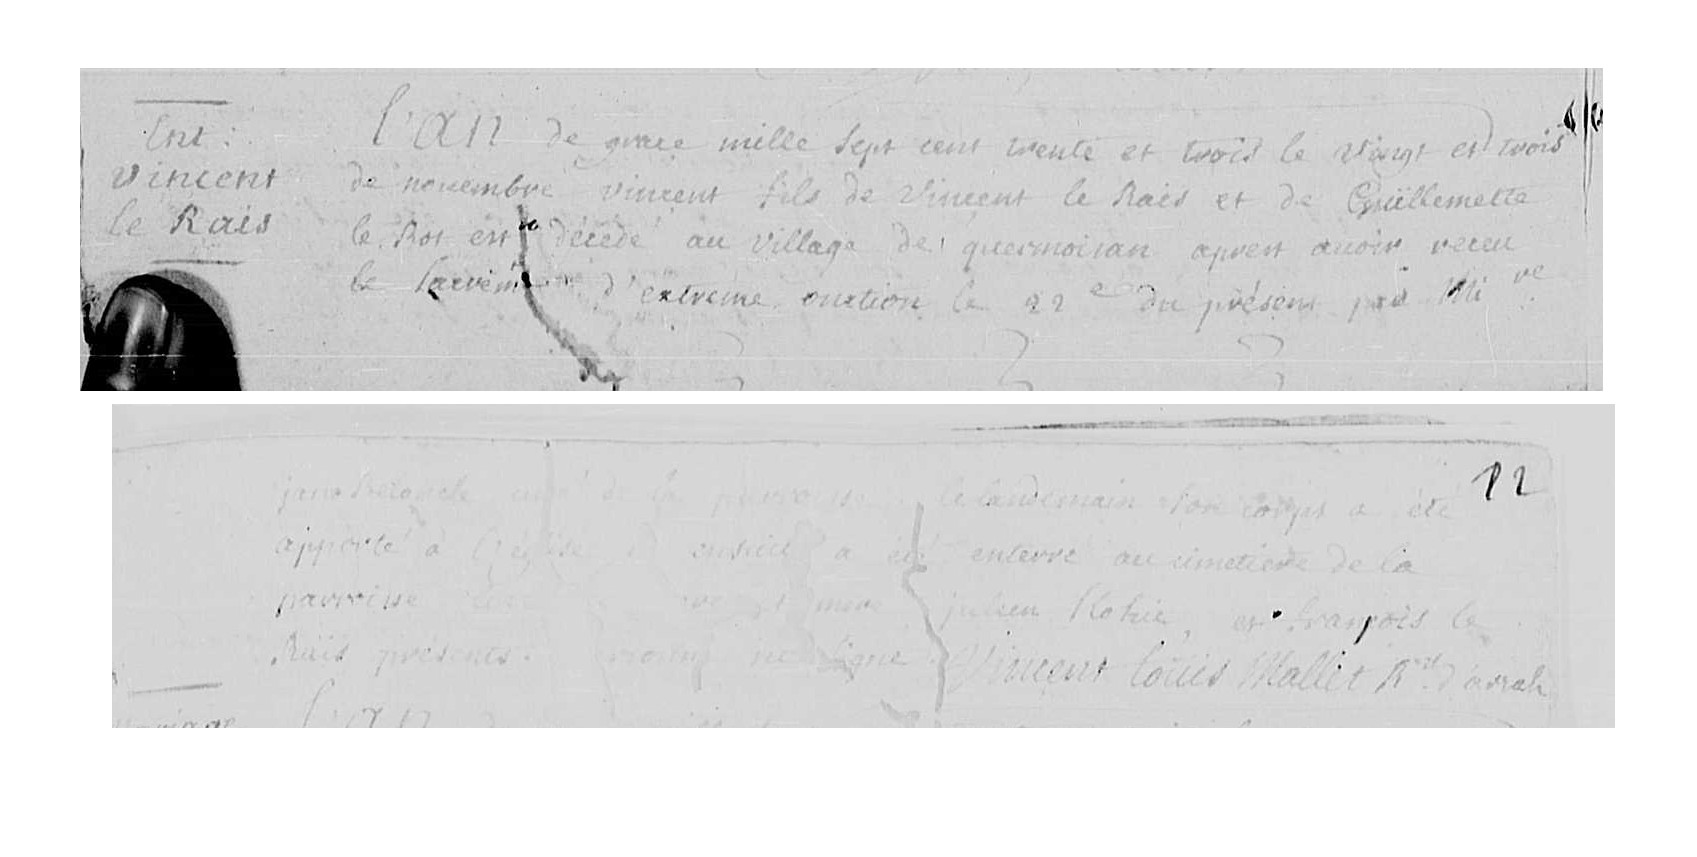 Ent :
Vincent
le Rais
l'an de grace mille sept cent trente et trois le vingt et trois
de novembre vincent fils de Vincent le Rais et de Guillemette
le Rot est décédé au village de quermoisan apres avoir receu
le d'extreme onction le 22e du présent par Mire
12
curé de la parroisse le landemain son corps a été
apporté à l'église et ensuite a été enterré au cimetiere de la
parroisse mere julien et françois le
Rais présents. ne signe Vincent louis Mallet Rr d'arrah
l'an